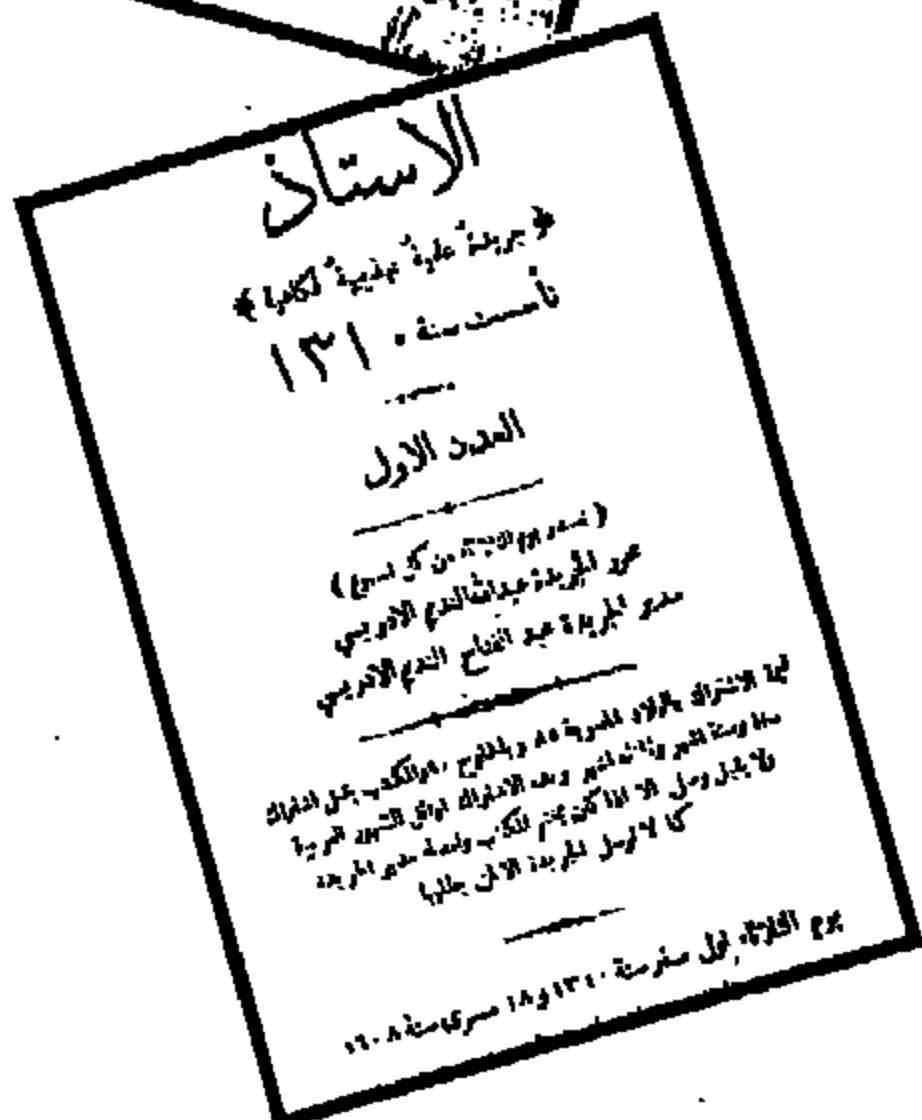 الاستاذ
﴿ جريدة علمية تهذيبية فكاهية ﴾
تأسست سنة ١٣١٠
العدد الاول
( تصدر يوم الثلاثاء من كل اسبوع )
محرر الجريدة عبدالله النديم الادريسي
مدير الجريدة عبد الفتاح النديم الادريسي
الاشتراك بالبلاد المصرية
وسنة اشهر الاشتراك الشهور العربية
ولا يقبل وصل الا اذا كان بختم الكاتب مدير الجريدة
كما لا ترسل الجريدة الا لمن يطلبها
يوم الثلاثاء اول صفر سنة ١٣١٠ و ١٨ مسرى سنة ١٦٠٨